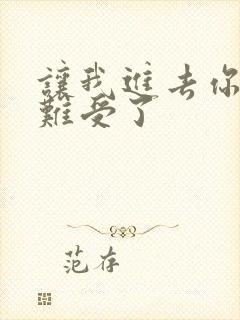 讓我進去你
難受了
范存